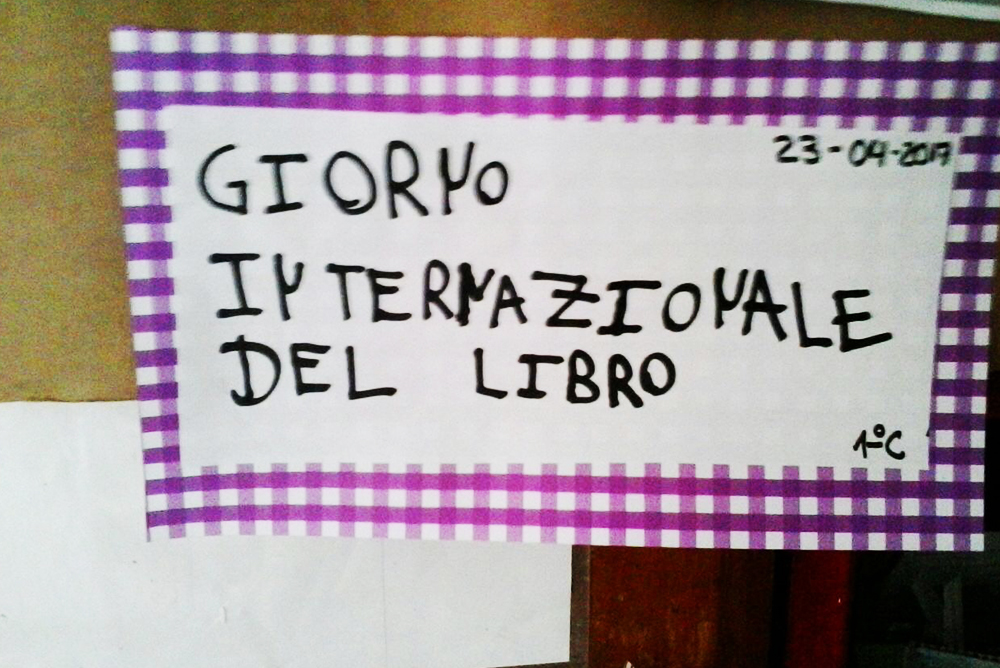 23-04-2017
GIORNO
INTERNAZIONALE
DEL LIBRO
1ºC